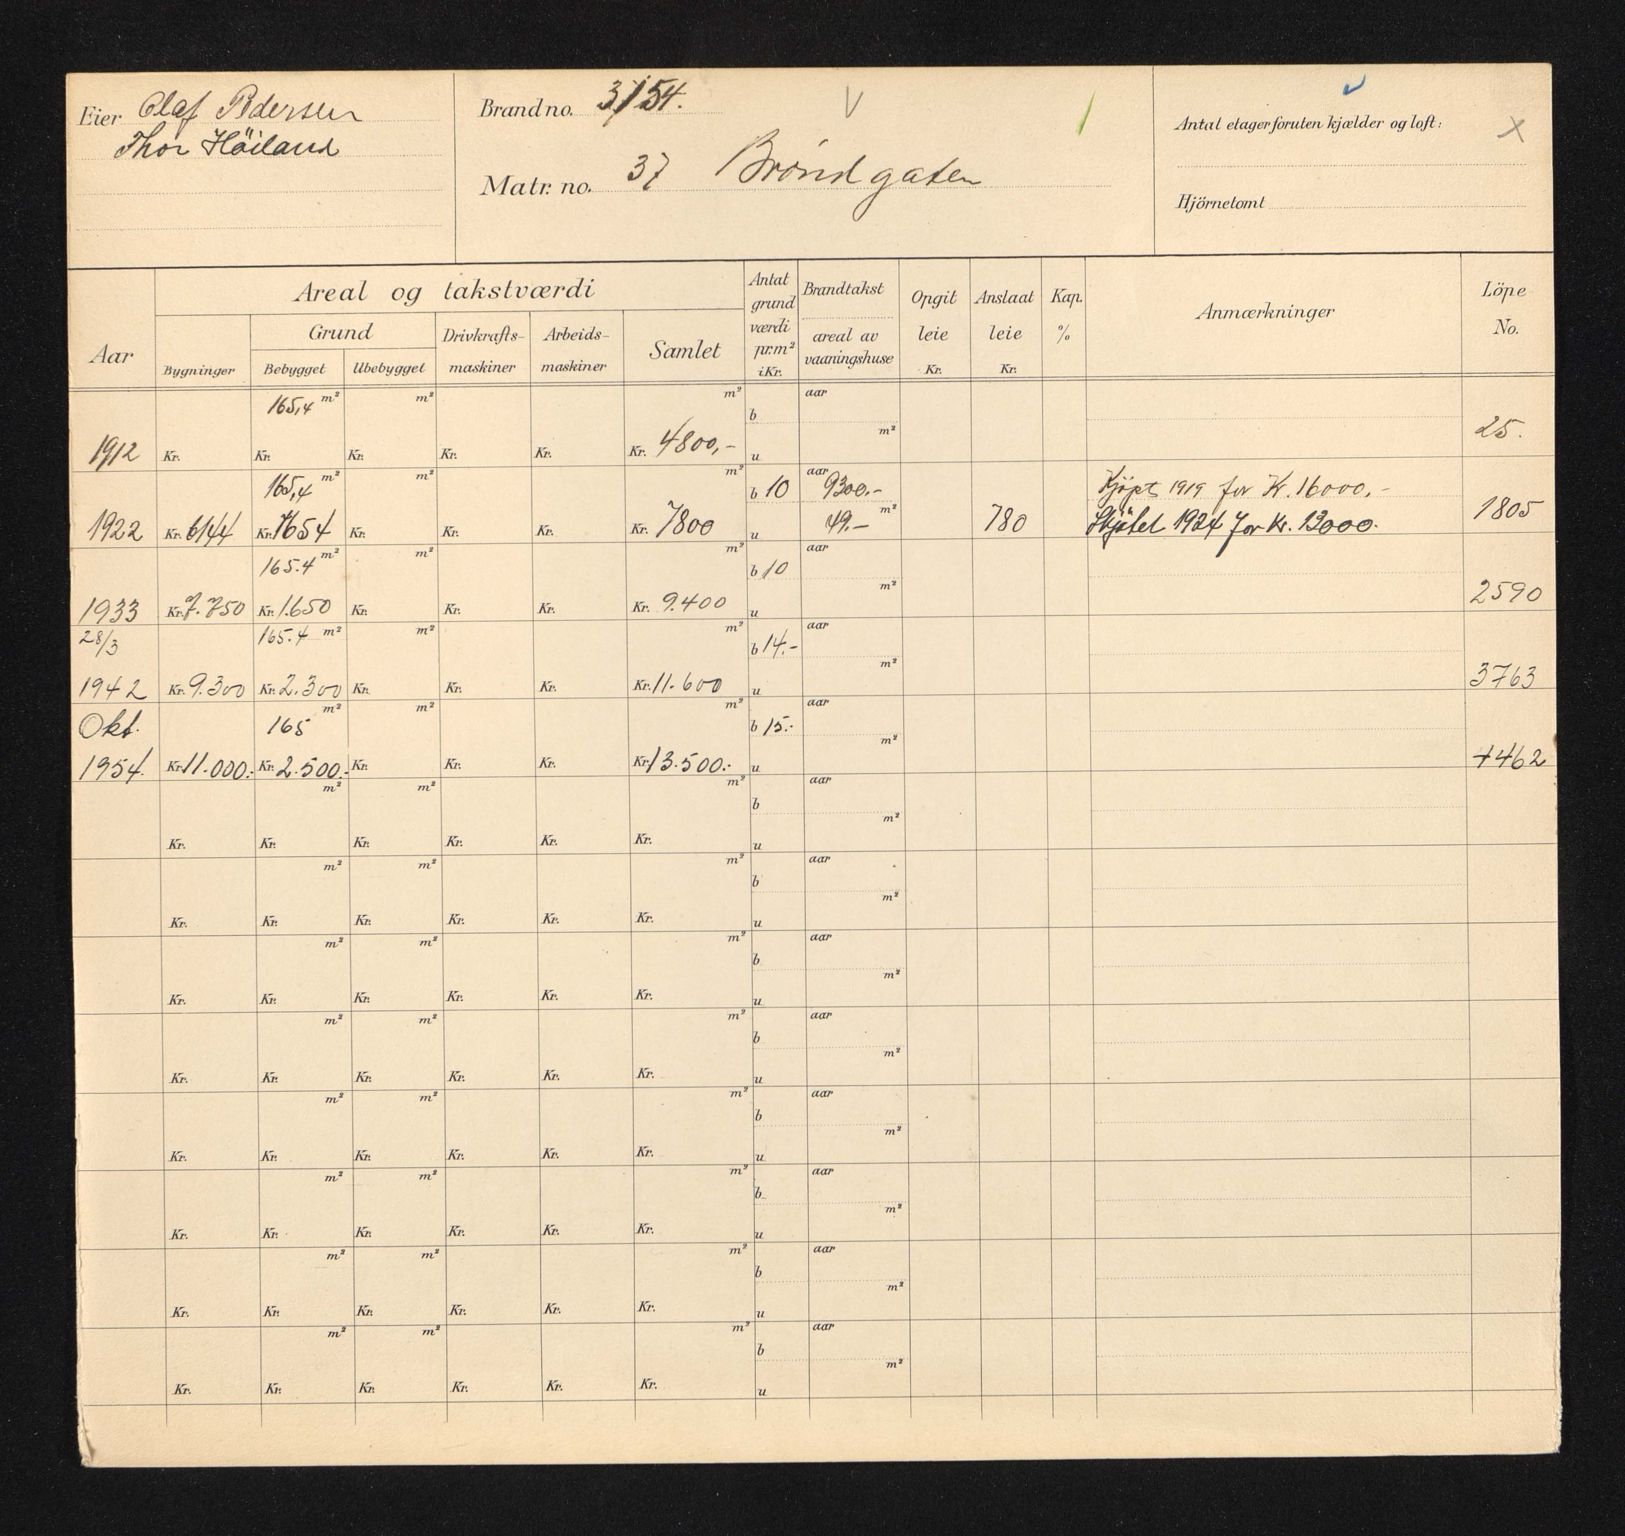 Eier Olaf Pedersen
Thor Höiland
Brand no. 3/54.
Matr. no. 37 Bröndgaten
Antal etager foruten kjælder og loft:
Hjörnetomt
Aar
Areal og takstværdi
Bygninger
Grund
Bebygget
Ubebygget
Drivkrafts-
maskiner
Arbeids-
maskiner
Samlet
Antat
grund
værdi
pr. m²
i Kr.
Brandtakst
areal av
vaaningshuse
Opgit
leie
Kr.
Anslaat
leie
Kr.
Kap.
%
Anmærkninger
Löpe
No.
165,4 m² m² m² b aar m²
1912 Kr. Kr. Kr. Kr. Kr. Kr. 4800,- u 25.
165,4 m² m² m² b 10 aar 9300.- Kjöpt 1919 for Kr. 16000,-
1922 Kr. 6144 Kr. 1654 Kr. Kr. Kr. Kr. 7800 u 49.- m² 780 Skjötet 1924 for Kr. 13000. 1805
165.4 m² m² m² b 10 aar m²
1933 Kr. 7.750 Kr. 1.650 Kr. Kr. Kr. Kr. 9.400 u 2590
28/3 165.4 m² m² m² b 14.- aar m²
1942 Kr. 9.300 Kr. 2.300 Kr. Kr. Kr. Kr. 11.600 u 3763
Okt. 165 m² m² m² b 15.- aar m²
1954. Kr. 11.000.- Kr. 2.500.- Kr. Kr. Kr. Kr. 13.500.- u 4462
m² m² m² b aar m²
Kr. Kr. Kr. Kr. Kr. Kr. u
m² m² m² b aar m²
Kr. Kr. Kr. Kr. Kr. Kr. u
m² m² m² b aar m²
Kr. Kr. Kr. Kr. Kr. Kr. u
m² m² m² b aar m²
Kr. Kr. Kr. Kr. Kr. Kr. u
m² m² m² b aar m²
Kr. Kr. Kr. Kr. Kr. Kr. u
m² m² m² b aar m²
Kr. Kr. Kr. Kr. Kr. Kr. u
m² m² m² b aar m²
Kr. Kr. Kr. Kr. Kr. Kr. u
m² m² m² b aar m²
Kr. Kr. Kr. Kr. Kr. Kr. u